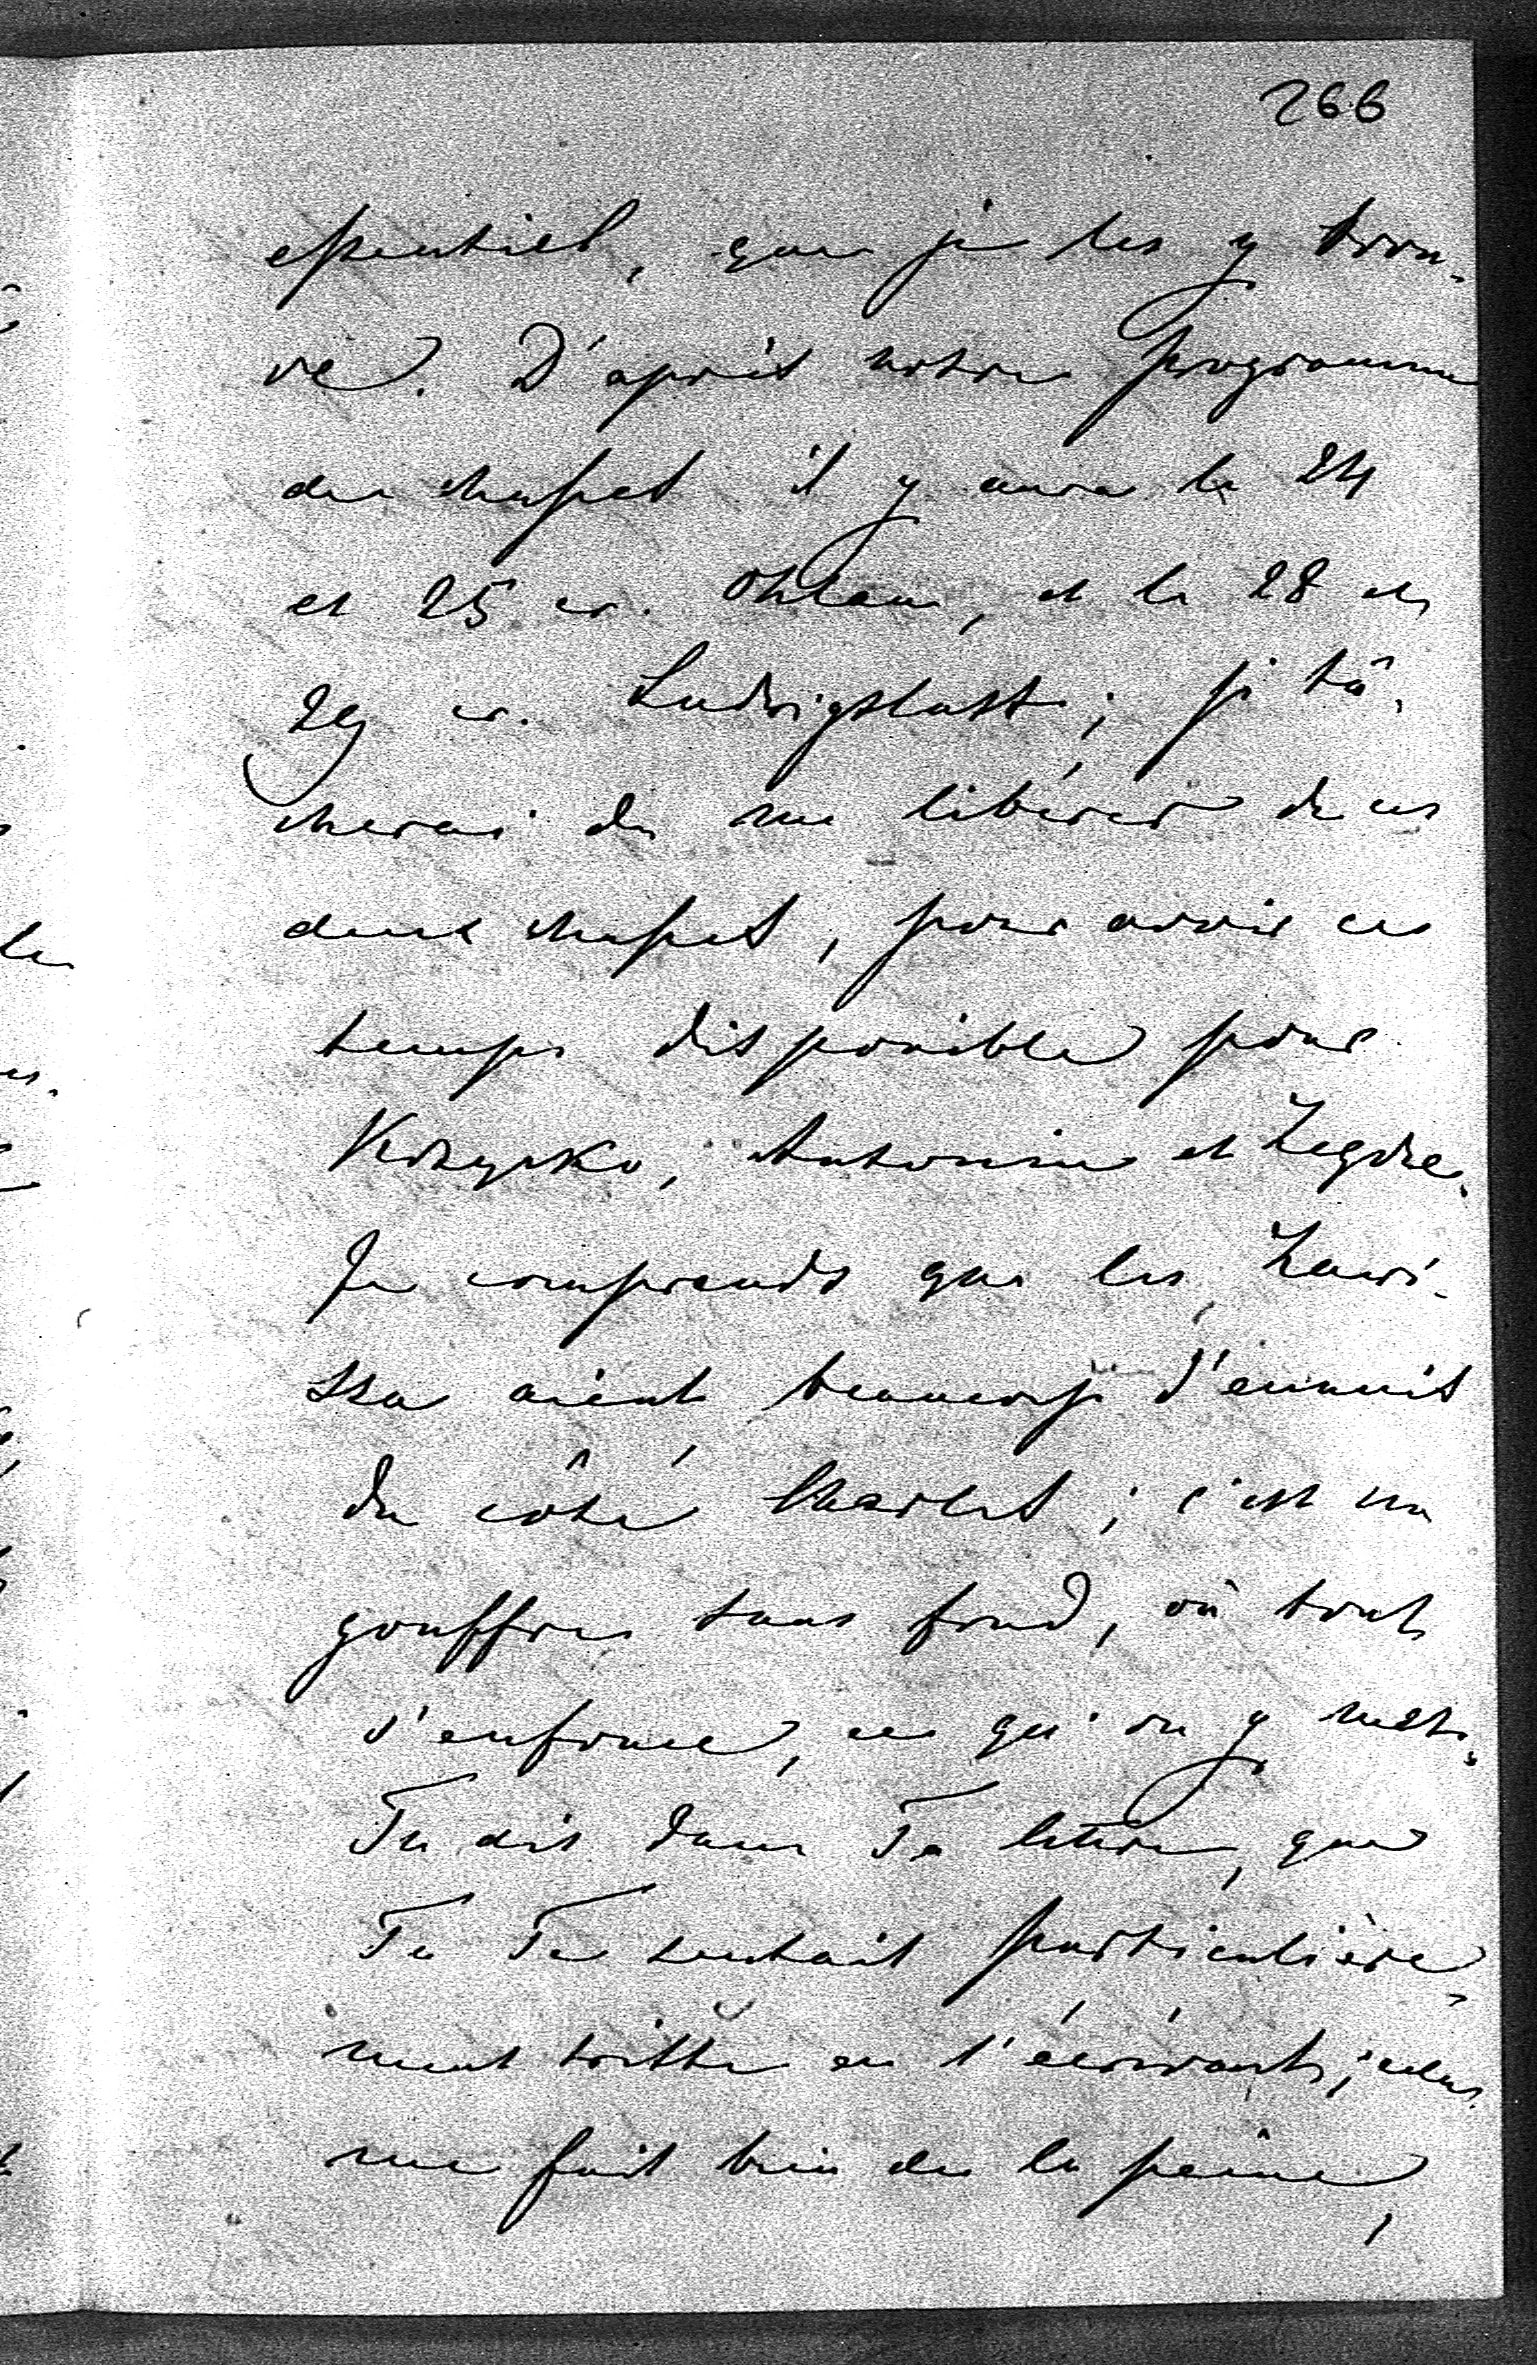 266
essentiel, que je les y trou-
ve. D'après notre programme
de chasses il y aura le 24
et 25 cr. Ohlau, et le 28 et
29 cr. Ludwigslust; je tâ-
cherai de me libérer de ces
deux chasses, pour avoir ce
temps disponible pour
Krzyzko, Antonin et Zegrze.
Je comprends que les Zawi-
sza aient beaucoup d'ennuis
du côté Charles; c'est un
gouffre sans fond, où tout
s'enfonce, ce qu'on y met.
Tu dis dans Ta lettre, que
Tu Te sentais particulière-
ment triste en l'écrivant; cela
me fait bien de la peine,